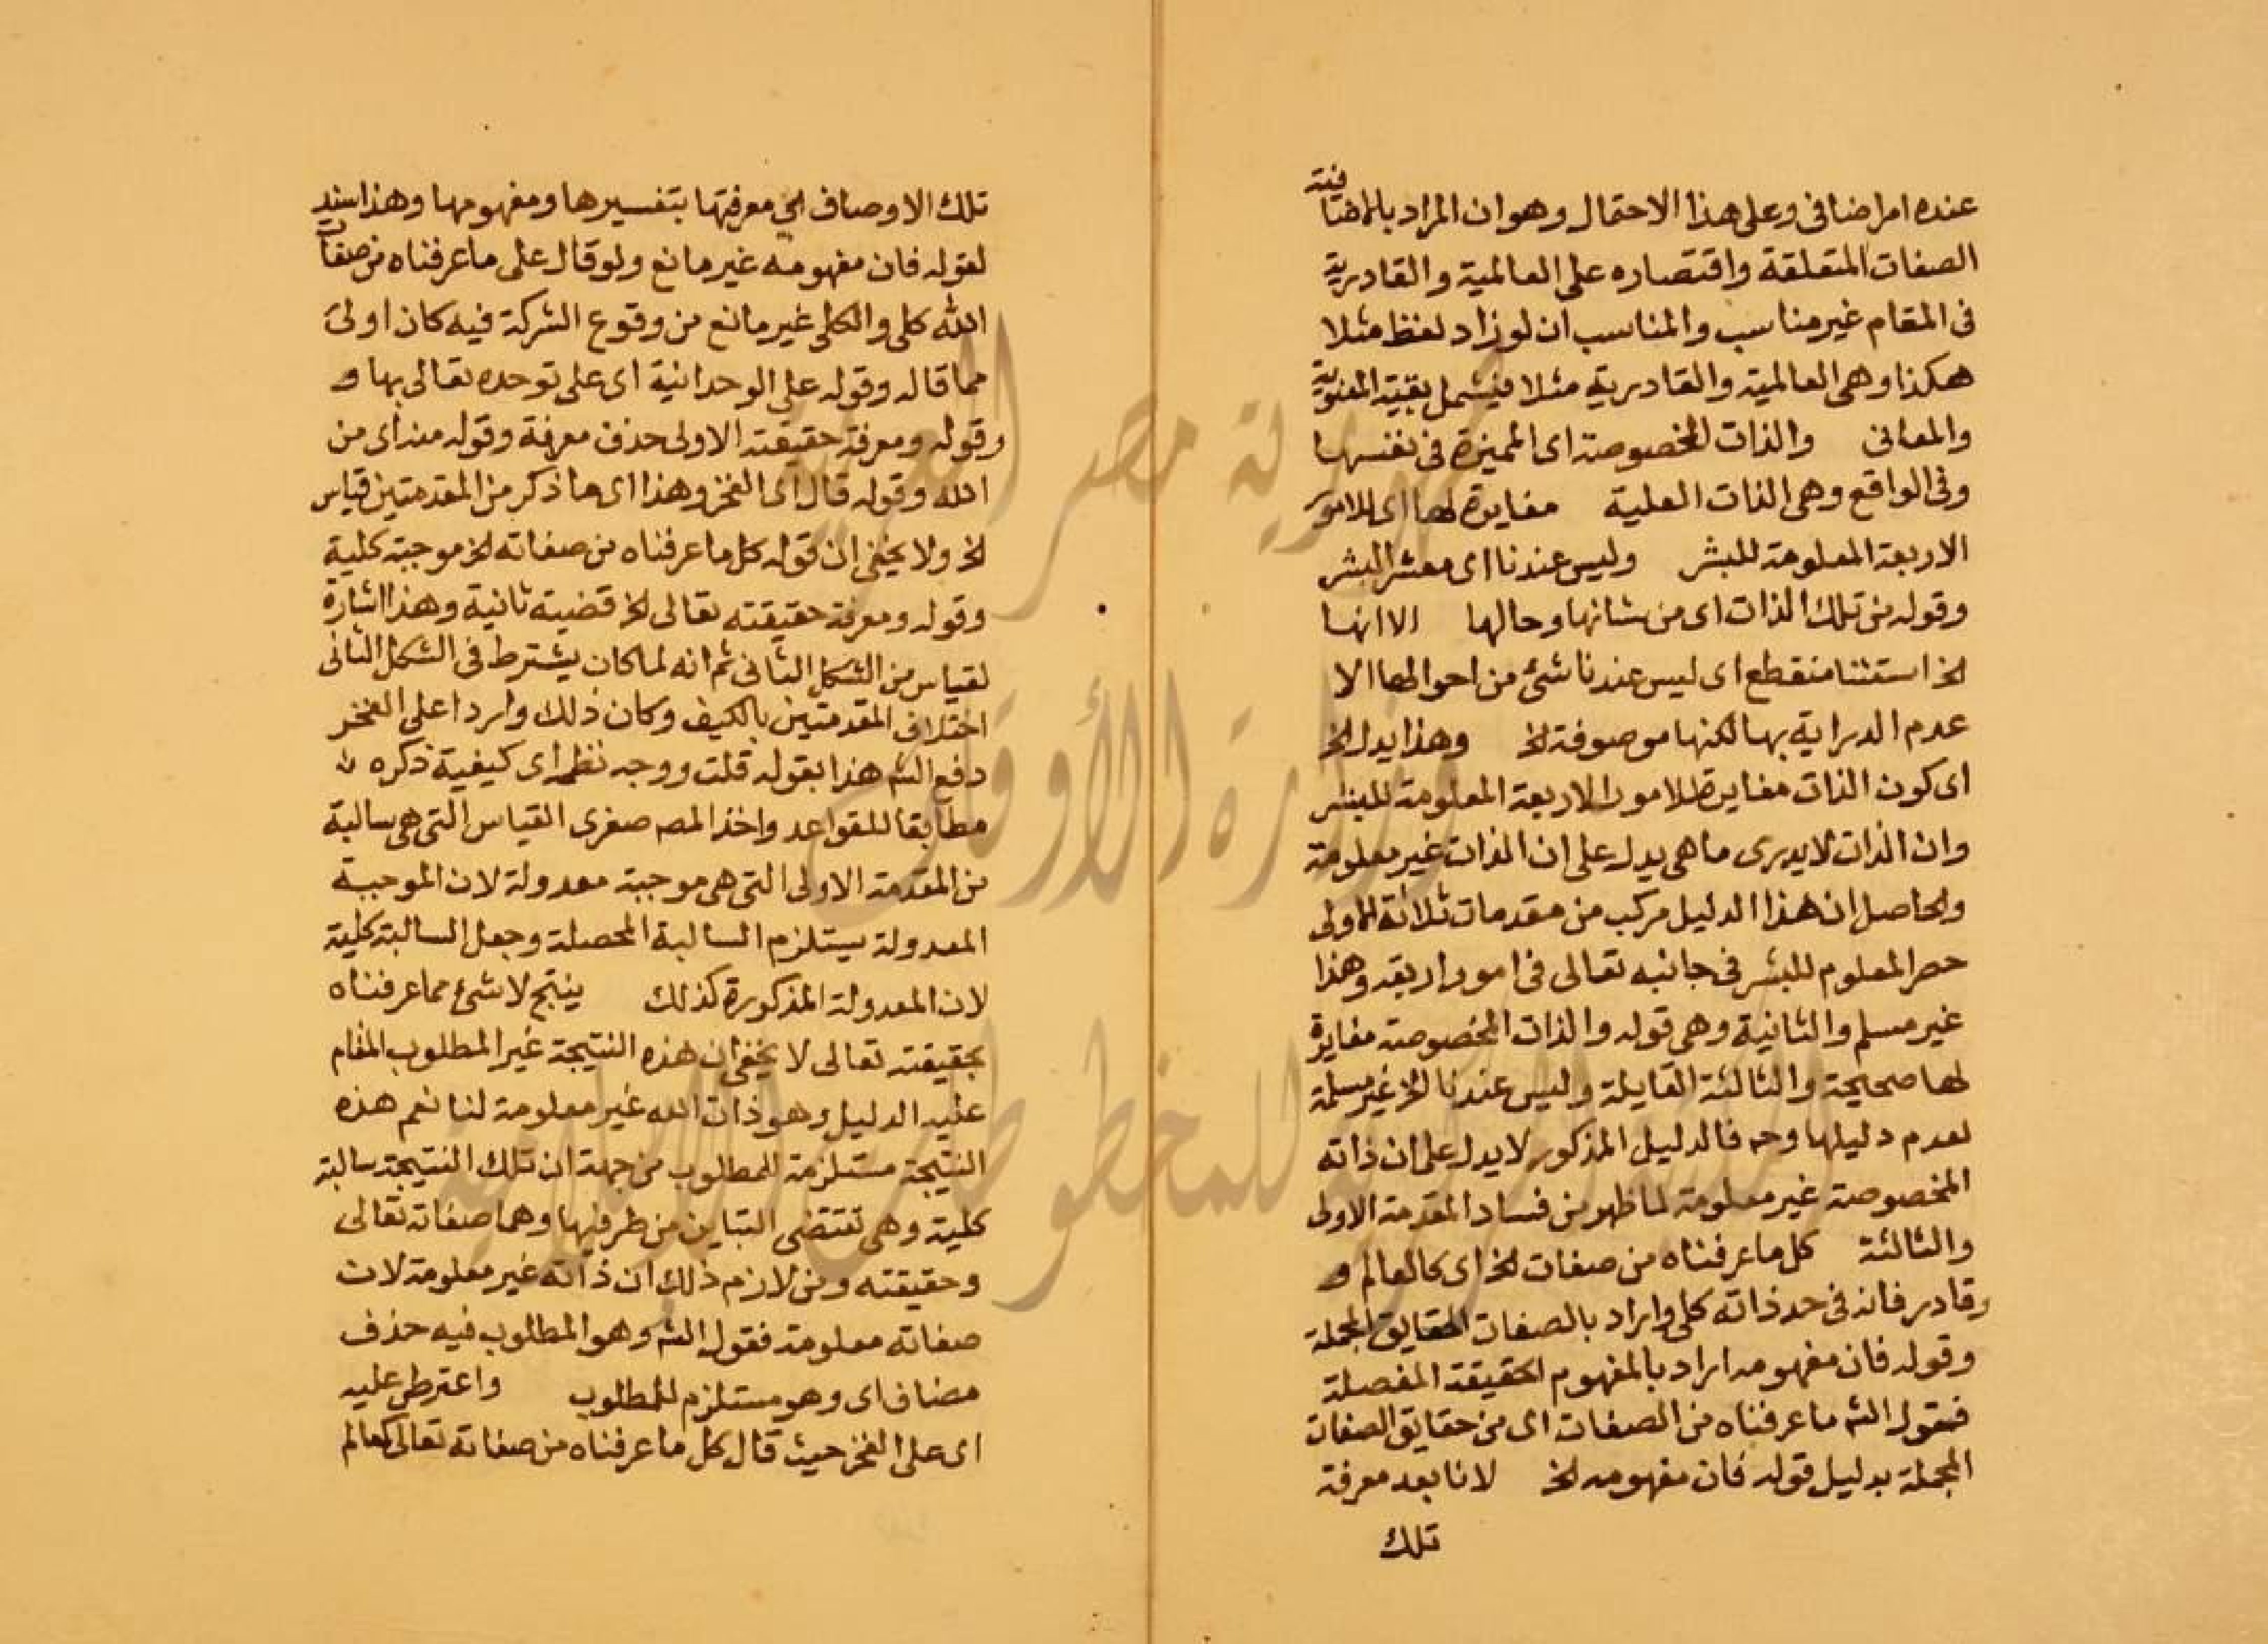 عنده امر اضافى وعلى هذا الاحتمال وهو ان المراد بالاضافية
الصفات المتعلقة واقتصاره على العالمية والقادرية
فى المقام غير مناسب والمناسب ان لو زاد لفظ مثلا
هكذا وهى العالمية والقادرية مثلا فيشمل بقية المعنوية
والمعانى والذات المخصوصة اى المميزة فى نفسها
وفى الواقع وهى الذات العلية مغايرة لها اى للامور
الاربعة المعلومة للبشر وليس عندنا اى معشر البشر
وقوله من تلك الذات اى من شانها وحالها الا انها
الخ استثنا منقطع اى ليس عندنا شئ من احوالها الا
عدم الدراية بها لكنها موصوفة الخ وهذا يدل الخ
اى كون الذات مغايرة للامور الاربعة المعلومة للبشر
وان الذات لا يدرى ما هى يدل على ان الذات غير معلومة
والحاصل ان هذا الدليل مركب من مقدمات ثلاثة الاولى
حصر المعلوم للبشر فى جانبه تعالى فى امور اربعة وهذا
غير مسلم والثانية وهى قوله والذات المخصوصة مغايرة
لها صحيحة والثالثة القايلة وليس عندنا الخ غير مسلمة
لعدم دليلها وح فالدليل المذكور لا يدل على ان ذاته
المخصوصة غير معلومة لما ظهر من فساد المقدمة الاولى
والثالثة كل ما عرفناه من صفات الخ اى كالعالم و
وقادر فانه فى حد ذاته كلى واراد بالصفات الحقايق المجملة
وقوله فان مفهومه اراد بالمفهوم الحقيقة المفصلة
فقول الش ما عرفناه من الصفات اى من حقايق الصفات
المجملة بدليل قوله فان مفهومه الخ لانا بعد معرفة
تلك
تلك الاوصاف اى معرفتها بتفسيرها ومفهومها وهذا سند
لقوله فان مفهومه غير مانع ولو قال على ما عرفناه من صفات
الله كلى والكلى غير مانع من وقوع الشركة فيه كان اولى
مما قاله وقوله على الوحدانية اى على توحده تعالى بها و
وقوله ومعرفة حقيقته الاولى حذف معرفة وقوله منه اى من
الله وقوله قال اى الفخر وهذا اى ما ذكر من المقدمتين قياس
الخ ولا يخفى ان قوله كل ما عرفناه من صفاته الخ موجبة كلية
وقوله ومعرفة حقيقته تعالى الخ قضية ثانية وهذا اشارة
لقياس من الشكل الثانى ثم انه لما كان يشترط فى الشكل الثانى
اختلاف المقدمتين بالكيف وكان ذلك واردا على الفخر
دفع الش هذا بقوله قلت ووجه نظمه اى كيفية ذكره
مطابقا للقواعد واخذ المص صغرى القياس التى هى سالبة
من المقدمة الاولى التى هى موجبة معدولة لان الموجبة
المعدولة يستلزم السالبة المحصلة وجعل السالبة كلية
لان المعدولة المذكورة كذلك ينتج لا شئ مما عرفناه
بحقيقته تعالى لا يخفى ان هذه النتيجة غير المطلوب المقام
عليه الدليل وهو ذات الله غير معلومة لنا نعم هذه
النتيجة مستلزمة للمطلوب من جهة ان تلك النتيجة سالبة
كلية وهى تقتضى التباين من طرفيها وهما صفاته تعالى
وحقيقته ومن لازم ذلك ان ذاته غير معلومة لان
صفاته معلومة فقول الش وهو المطلوب فيه حذف
مضاف اى وهو مستلزم للمطلوب واعترض عليه
اى على الفخر حيث قال كل ما عرفناه من صفاته تعالى كعالم